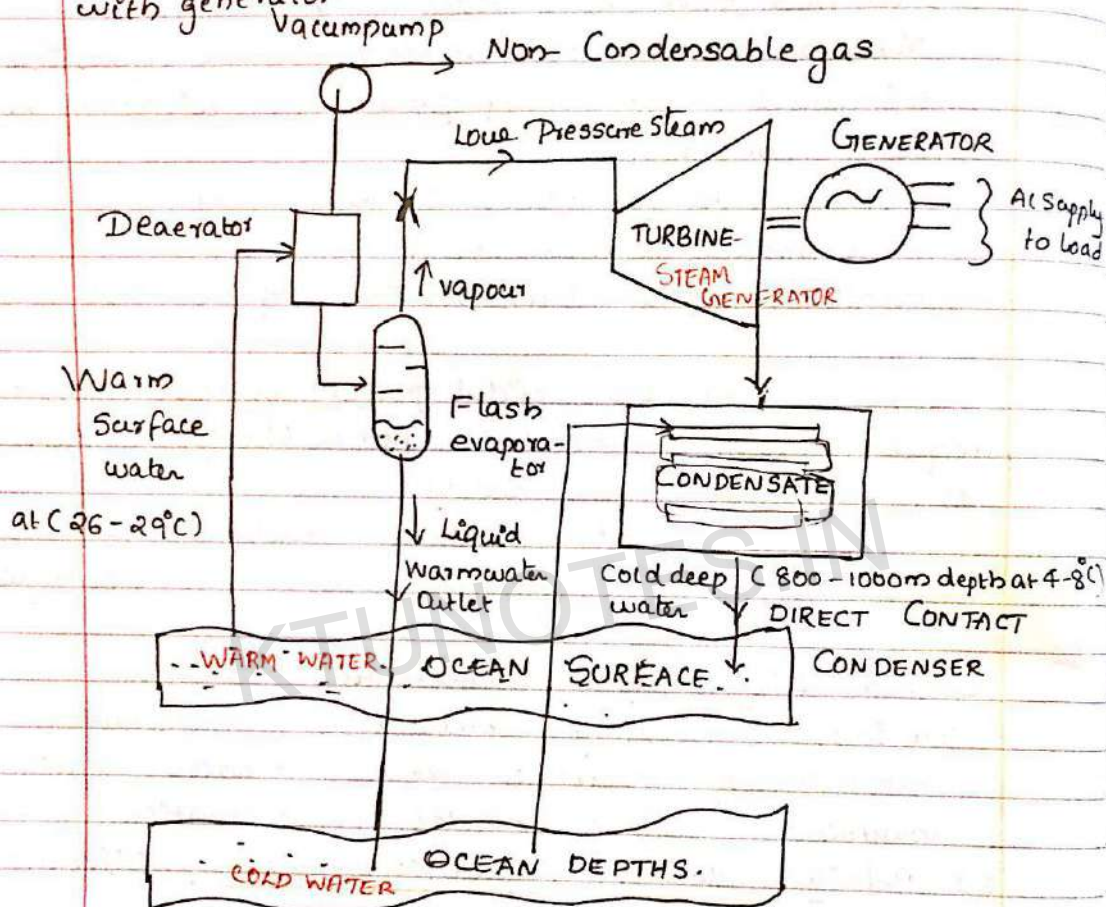 with generator
Vacumpump
Non- Condensable gas
Loue Pressure Steam
GENERATOR
Deaerator
AC Supply
to load
TURBINE-
STEAM
GENERATOR
↑ vapour
Warm
Surface
water
at (26-29°C)
Flash
evapora-
tor
CONDENSATE
↓ Liquid
Warmwater
Outlet
Cold deep
water
(800-1000m depth at 4-8°C)
DIRECT CONTACT
CONDENSER
WARM WATER
OCEAN SURFACE
COLD WATER
OCEAN DEPTHS.
KTUNOTES.IN